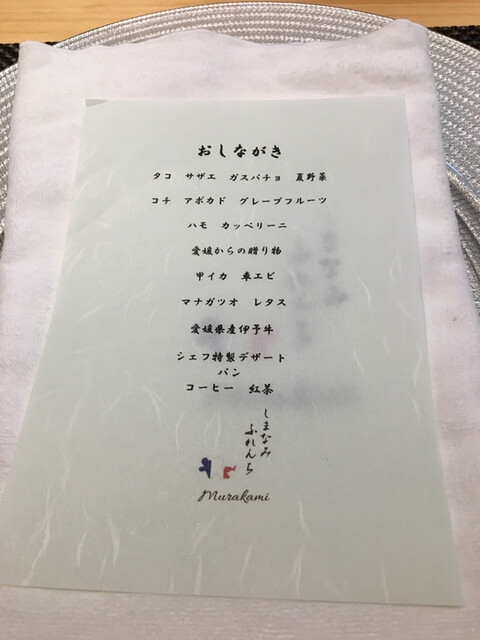 おしながき
タコ　サザエ　ガスパチョ　夏野菜
コチ　アボカド　グレープフルーツ
ハモ　カッペリーニ
愛媛からの贈り物
甲イカ　車エビ
マナガツオ　レタス
愛媛県産伊予牛
シェフ特製デザート
パン
コーヒー　紅茶
しまなみ
ふれんち
Murakami